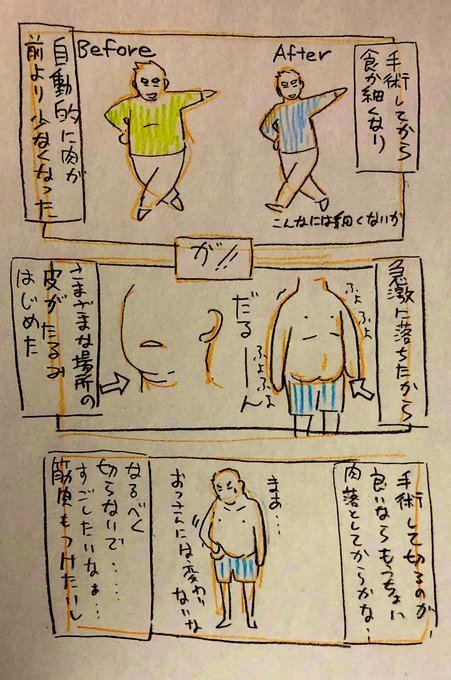 手術してから
食が細くなり
Before
After
こんなには細くないか
自動的に肉が
前より少なくなった
が!!
急激に落ちたから
ぷよぷよ
ぷよぷよ
だるーーん
さまざまな場所の
皮がたるみ
はじめた
手術して切るのが
良いならもうちょい
肉落としてからかな・
まぁ…
おっさんには変わり
ないな
なるべく
切らないで・・・・
すごしたいなぁ…
筋肉もつけたいし